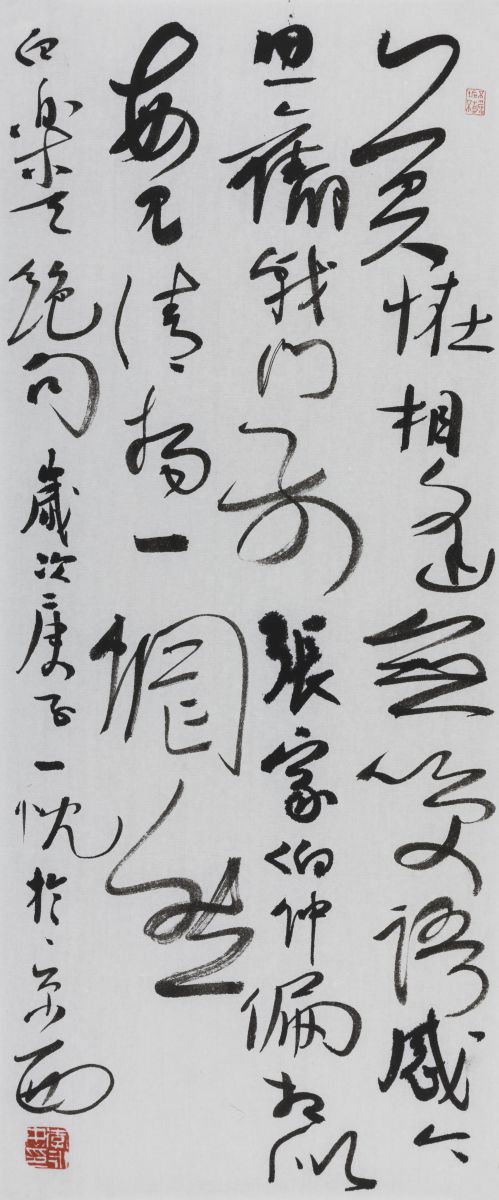 莫怪相逢無笑語感今
思舊戟門前張家伯仲偏相似
每見清揚一惘然
白樂天絕句歲次庚子一忱於京西